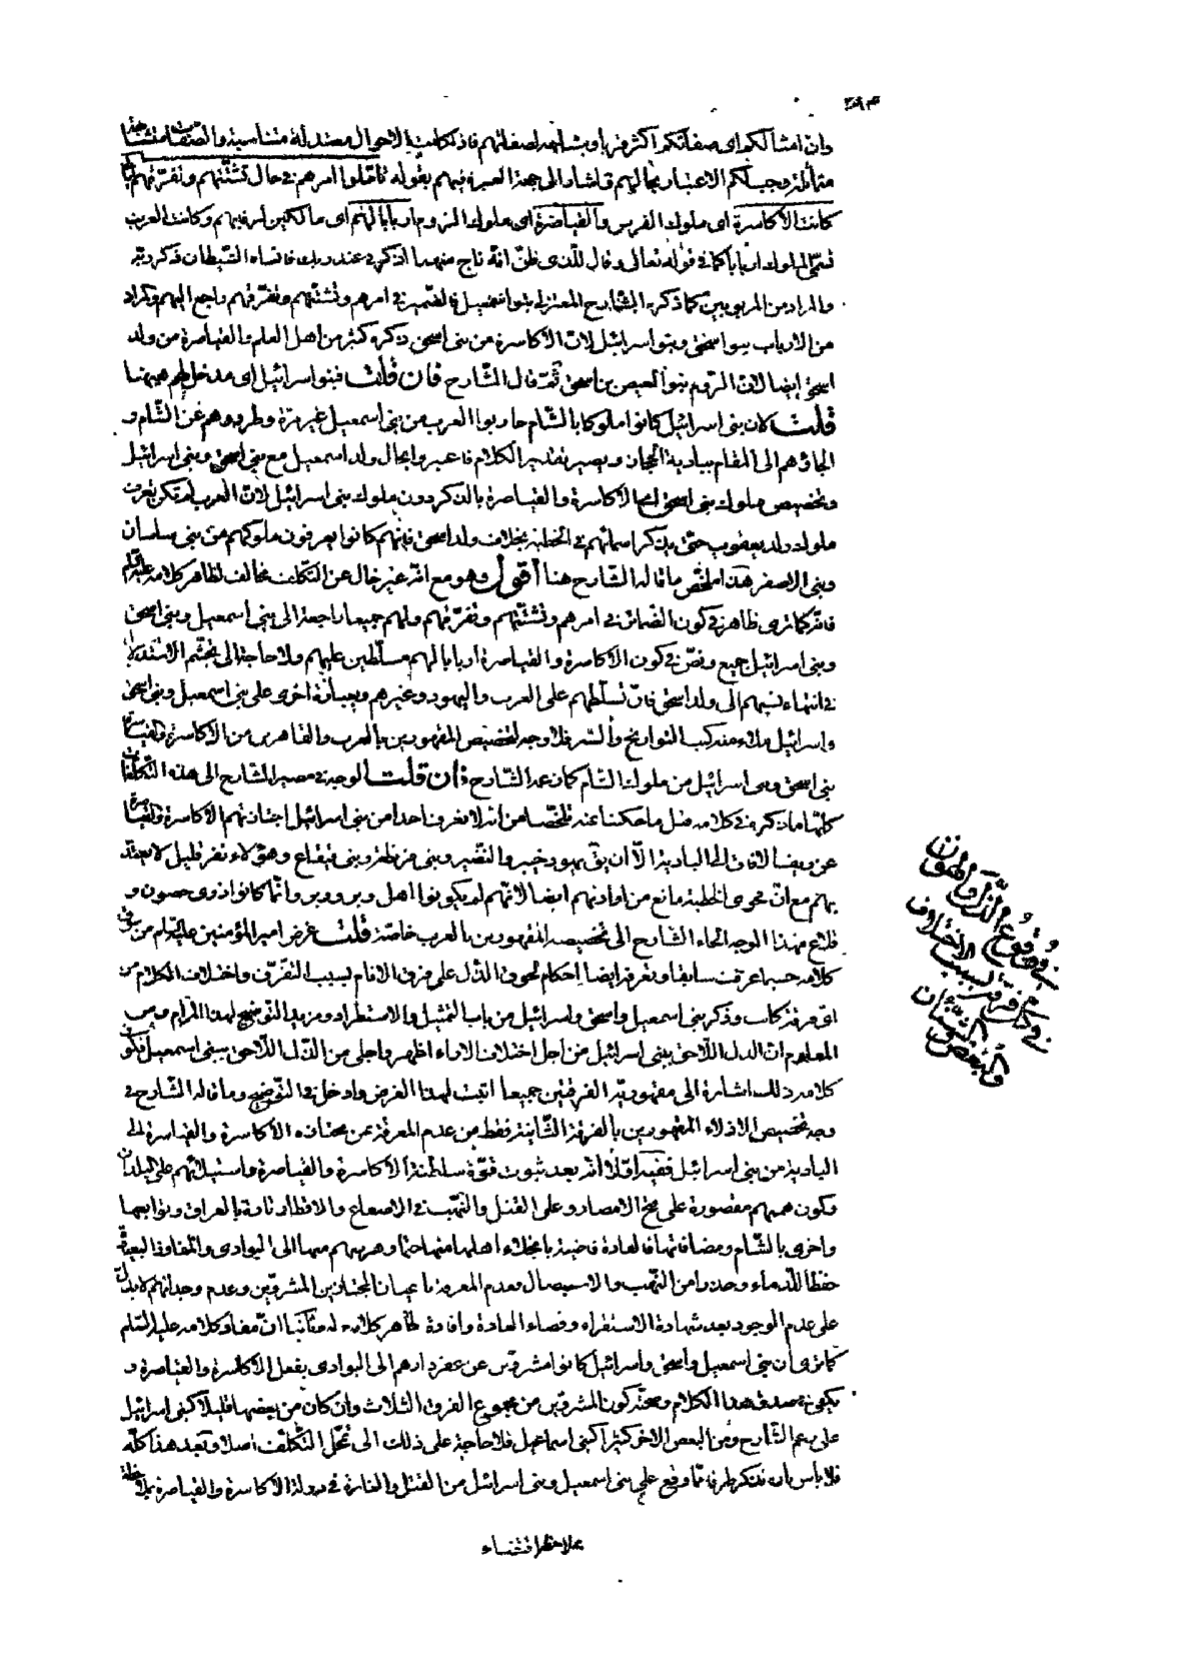 وان امثالكم اى صفاتكم اكثر قربا وبشابهة لصفاتهم فاذا كانت الاحوال معتدلة متناسبة والصفات متشابهة
متماثلة وجب لكم الاعتبار بحالهم ثم اشار الى جهة العبرة فيهم بقوله تاملوا امرهم فى حال تشتتهم وتفرقهم ليالى
كانت الاكاسرة اى ملوك الفرس والقياصرة اى ملوك الروم اربابا لهم اى مالكين لرقابهم وكانت العرب
تسمى الملوك اربابا كما فى قوله تعالى وقال للذى ظن انه ناج منهما اذكرنى عند ربك فانساه الشيطان ذكر ربه
والمراد من المربوبين كما ذكره الشارح المعتزلى بنو اسمعيل فالضمير فى امرهم وتشتتهم وتفرقهم راجع اليهم والمراد
من الارباب بنو اسحق وبنو اسرائيل لان الاكاسرة من بنى اسحق ذكره كثير من اهل العلم والقياصرة من ولد
اسحق ايضا لان الروم بنو العيص بن اسحق ثم قال الشارح فان قلت فبنو اسرائيل اى مدخل لهم ههنا
قلت لان بنى اسرائيل كانوا ملوكا بالشام حاربوا العرب من بنى اسمعيل غير مرة وطردوهم عن الشام و
الجاؤهم الى المقام ببادية الحجاز ويصير تقدير الكلام فاعتبروا بحال ولد اسمعيل مع بنى اسحق وبنى اسرائيل
وتخصيص ملوك بنى اسحق اى الاكاسرة والقياصرة بالذكر دون ملوك بنى اسرائيل لان العرب لم تكن تعرف
ملوك ولد يعقوب حتى يذكر اسمائهم فى الخطبة بخلاف ولد اسحق فانهم كانوا يعرفون ملوكهم من بنى ساسان
وبنى الاصفر هذا ملخص ما قاله الشارح هنا اقول وهو مع انه غير خال عن التكلف مخالف لظاهر كلامه عليه السلام
فانه كما ترى ظاهر فى كون الضمائر فى امرهم وتشتتهم وتفرقهم ولهم جميعا راجعة الى بنى اسمعيل وبنى اسحق
وبنى اسرائيل جميع ونص فى كون الاكاسرة والقياصرة اربابا لهم مسلطين عليهم ولا حاجة الى تجشم الاستدلال
فى انتهاء نسبهم الى ولد اسحق فان تسلطهم على العرب واليهود وغيرهم وبعبارة اخرى على بنى اسمعيل وبنى اسحق
واسرائيل ملاء منه كتب التواريخ والسير فلا وجه لتخصيص المقهورين بالعرب والقاهرين من الاكاسرة والقياصرة
بنى اسحق وبنى اسرائيل من ملوك الشام كما زعمه الشارح فان قلت الوجه فى مصير الشارح الى هذه التكلفات
كلها ما ذكره فى كلامه قبل ما حكينا عنه ملخصا من انه لا نعرف احدا من بنى اسرائيل اجتازتهم الاكاسرة والقياصرة
عن ريف الافاق الى البادية الا ان يق يهود خيبر والنضير وبنى قريظة وبنى قينقاع وهؤلاء نفر قليل لا يعتد
بهم مع ان فحوى الخطبة مانع من ارادتهم ايضا لانهم لم يكونوا اهل وبر ودبر وانما كانوا ذوى حصون و
قلاع فهذا الوجه الجاء الشارح الى تخصيصه المقهورين بالعرب خاصة قلت غرض امير المؤمنين عليه السلام من سوق
كلامه حسبما عرفت سابقا وتعرفه ايضا احكام لحوق الذل على فرق الانام لسبب التفرق واختلاف الكلام من
اى فرقة كانت وذكر بنى اسمعيل واسحق واسرائيل من باب التمثيل والاستطراد ومزيد التوضيح لهذا المرام ومن
المعلوم ان الذل اللاحق ببنى اسرائيل من اجل اختلاف الاراء اظهر واجلى من الذل اللاحق ببنى اسمعيل فكون
كلامه ذلك اشارة الى مقهورية الفريقين جميعا اثبت لهذا الغرض وادخل فى التوضيح وما قاله الشارح فى
وجه تخصيص الاذلاء المقهورين بالفرقة الثانية فقط من عدم المعرفة بمن احتازه الاكاسرة والقياسرة الى
البادية من بنى اسرائيل ففيه اولا انه بعد ثبوت قوة سلطنة الاكاسرة والقياصرة واستيلائهم على البلدان
وكون هممهم مقصورة على فتح الامصار وعلى القتل والنهب فى الاصقاع والاقطار تارة بالعراق وتوابعها
واخرى بالشام ومضافاتها فالعادة قاضية بانجلاء اهلها منها حتما وهربهم منها الى البوادى والمفاوز البعيدة
حفظا للدماء وحذرا من النهب والاستيصال فعدم المعرفة باعيان المجتازين المشردين وعدم وجدانهم لا يدل
على عدم الوجود بعد شهادة الاستقراء وقضاء العادة وافادة ظاهر كلامه له وثانيا ان مفاد كلامه عليه السلام
كما ترى ان بنى اسمعيل واسحق واسرائيل كانوا مشردين عن عقر دارهم الى البوادى بفعل الاكاسرة والقياصرة و
يكفى فى صدق هذا الكلام وصحته كون المشردين من مجموع الفرق الثلاث وان كان من بعضها قليلا كبنى اسرائيل
على زعم الشارح ومن البعض الاخر كثيرا كبنى اسماعيل فلا حاجة على ذلك الى تمحل التكلف اصلا وبعد هذا كله
فلا باس بان نذكر طرفا مما وقع على بنى اسمعيل وبنى اسرائيل من القتل والغارة فى دولة الاكاسرة والقياصرة بملاحظة
بملاحظة اقتضاء
فى وقوع الذل والهوان